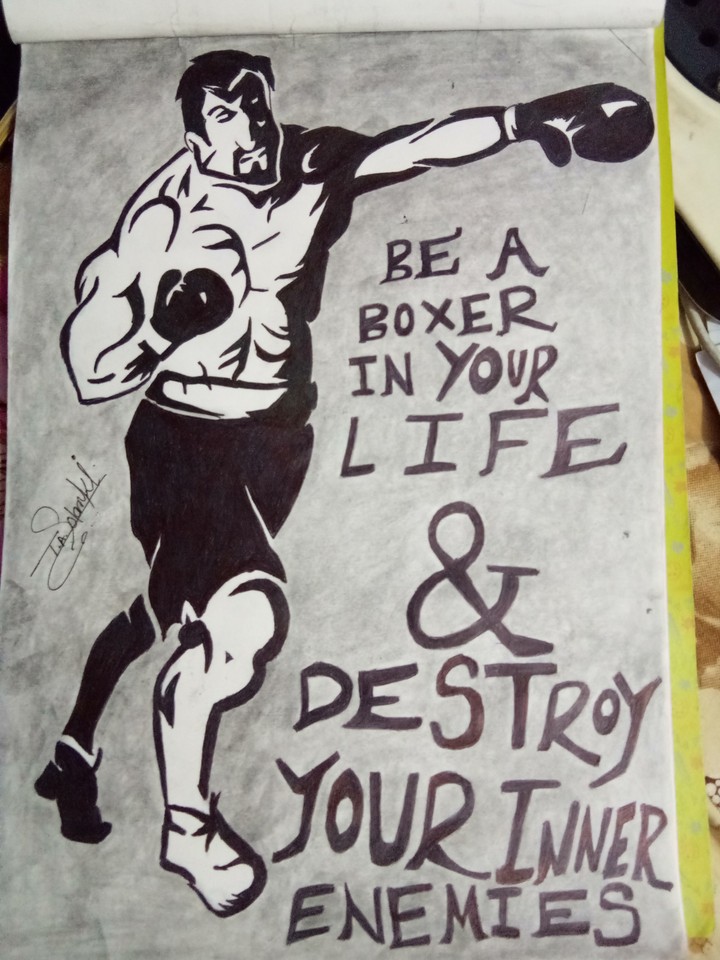 BE A
BOXER
IN YOUR
LIFE
&
DESTROY
YOUR INNER
ENEMIES